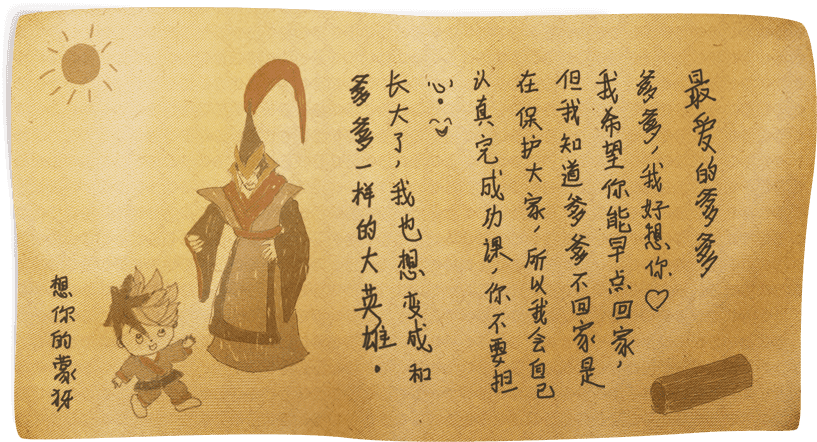 最爱的爹爹
爹爹，我好想你♡
我希望你能早点回家，
但我知道爹爹不回家是
在保护大家，所以我会自己
认真完成功课，你不要担
心。
长大了，我也想变成和
爹爹一样的大英雄。
想你的蒙犽